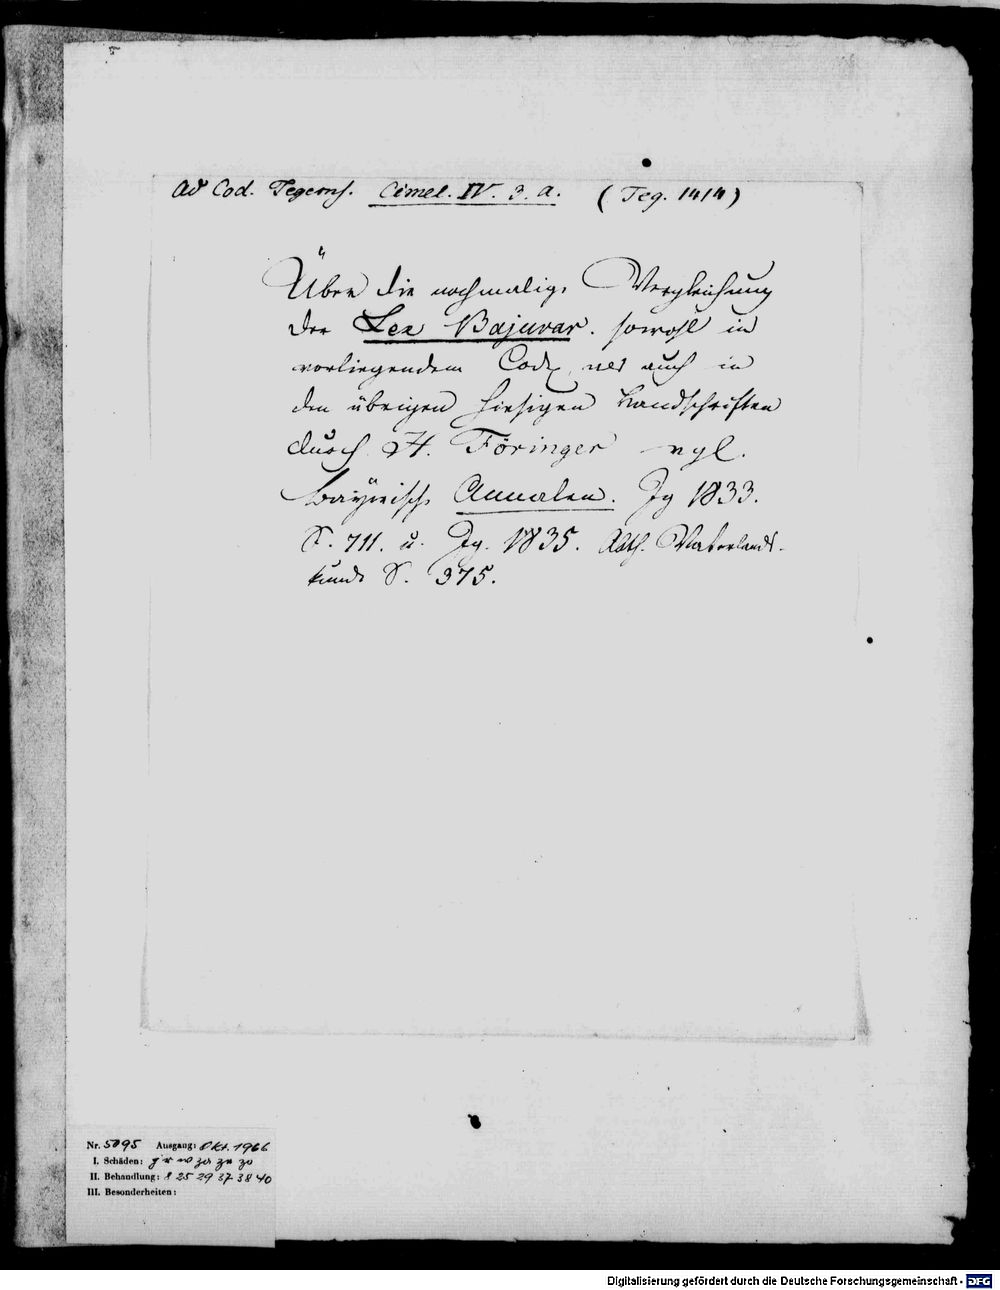 Ad Cod. Tegerns. Cimel. IV. 3. a. (Teg. 1414)
Über die nochmalige Vergleichung
der Lex Bajuvar. sowohl in
vorliegendem Cod. als auch in
den übrigen hiesigen Handschriften
durch H. Föringer vgl.
bayerische Annalen. Jg 1833.
S. 711. u. Jg. 1835. Abth. Vaterlands-
kunde S. 375.
Nr. 5095 Ausgang: Okt. 1966
I. Schäden:
II. Behandlung: 8 25 29 37 38 40
III. Besonderheiten:
Digitalisierung gefördert durch die Deutsche Forschungsgemeinschaft - DFG